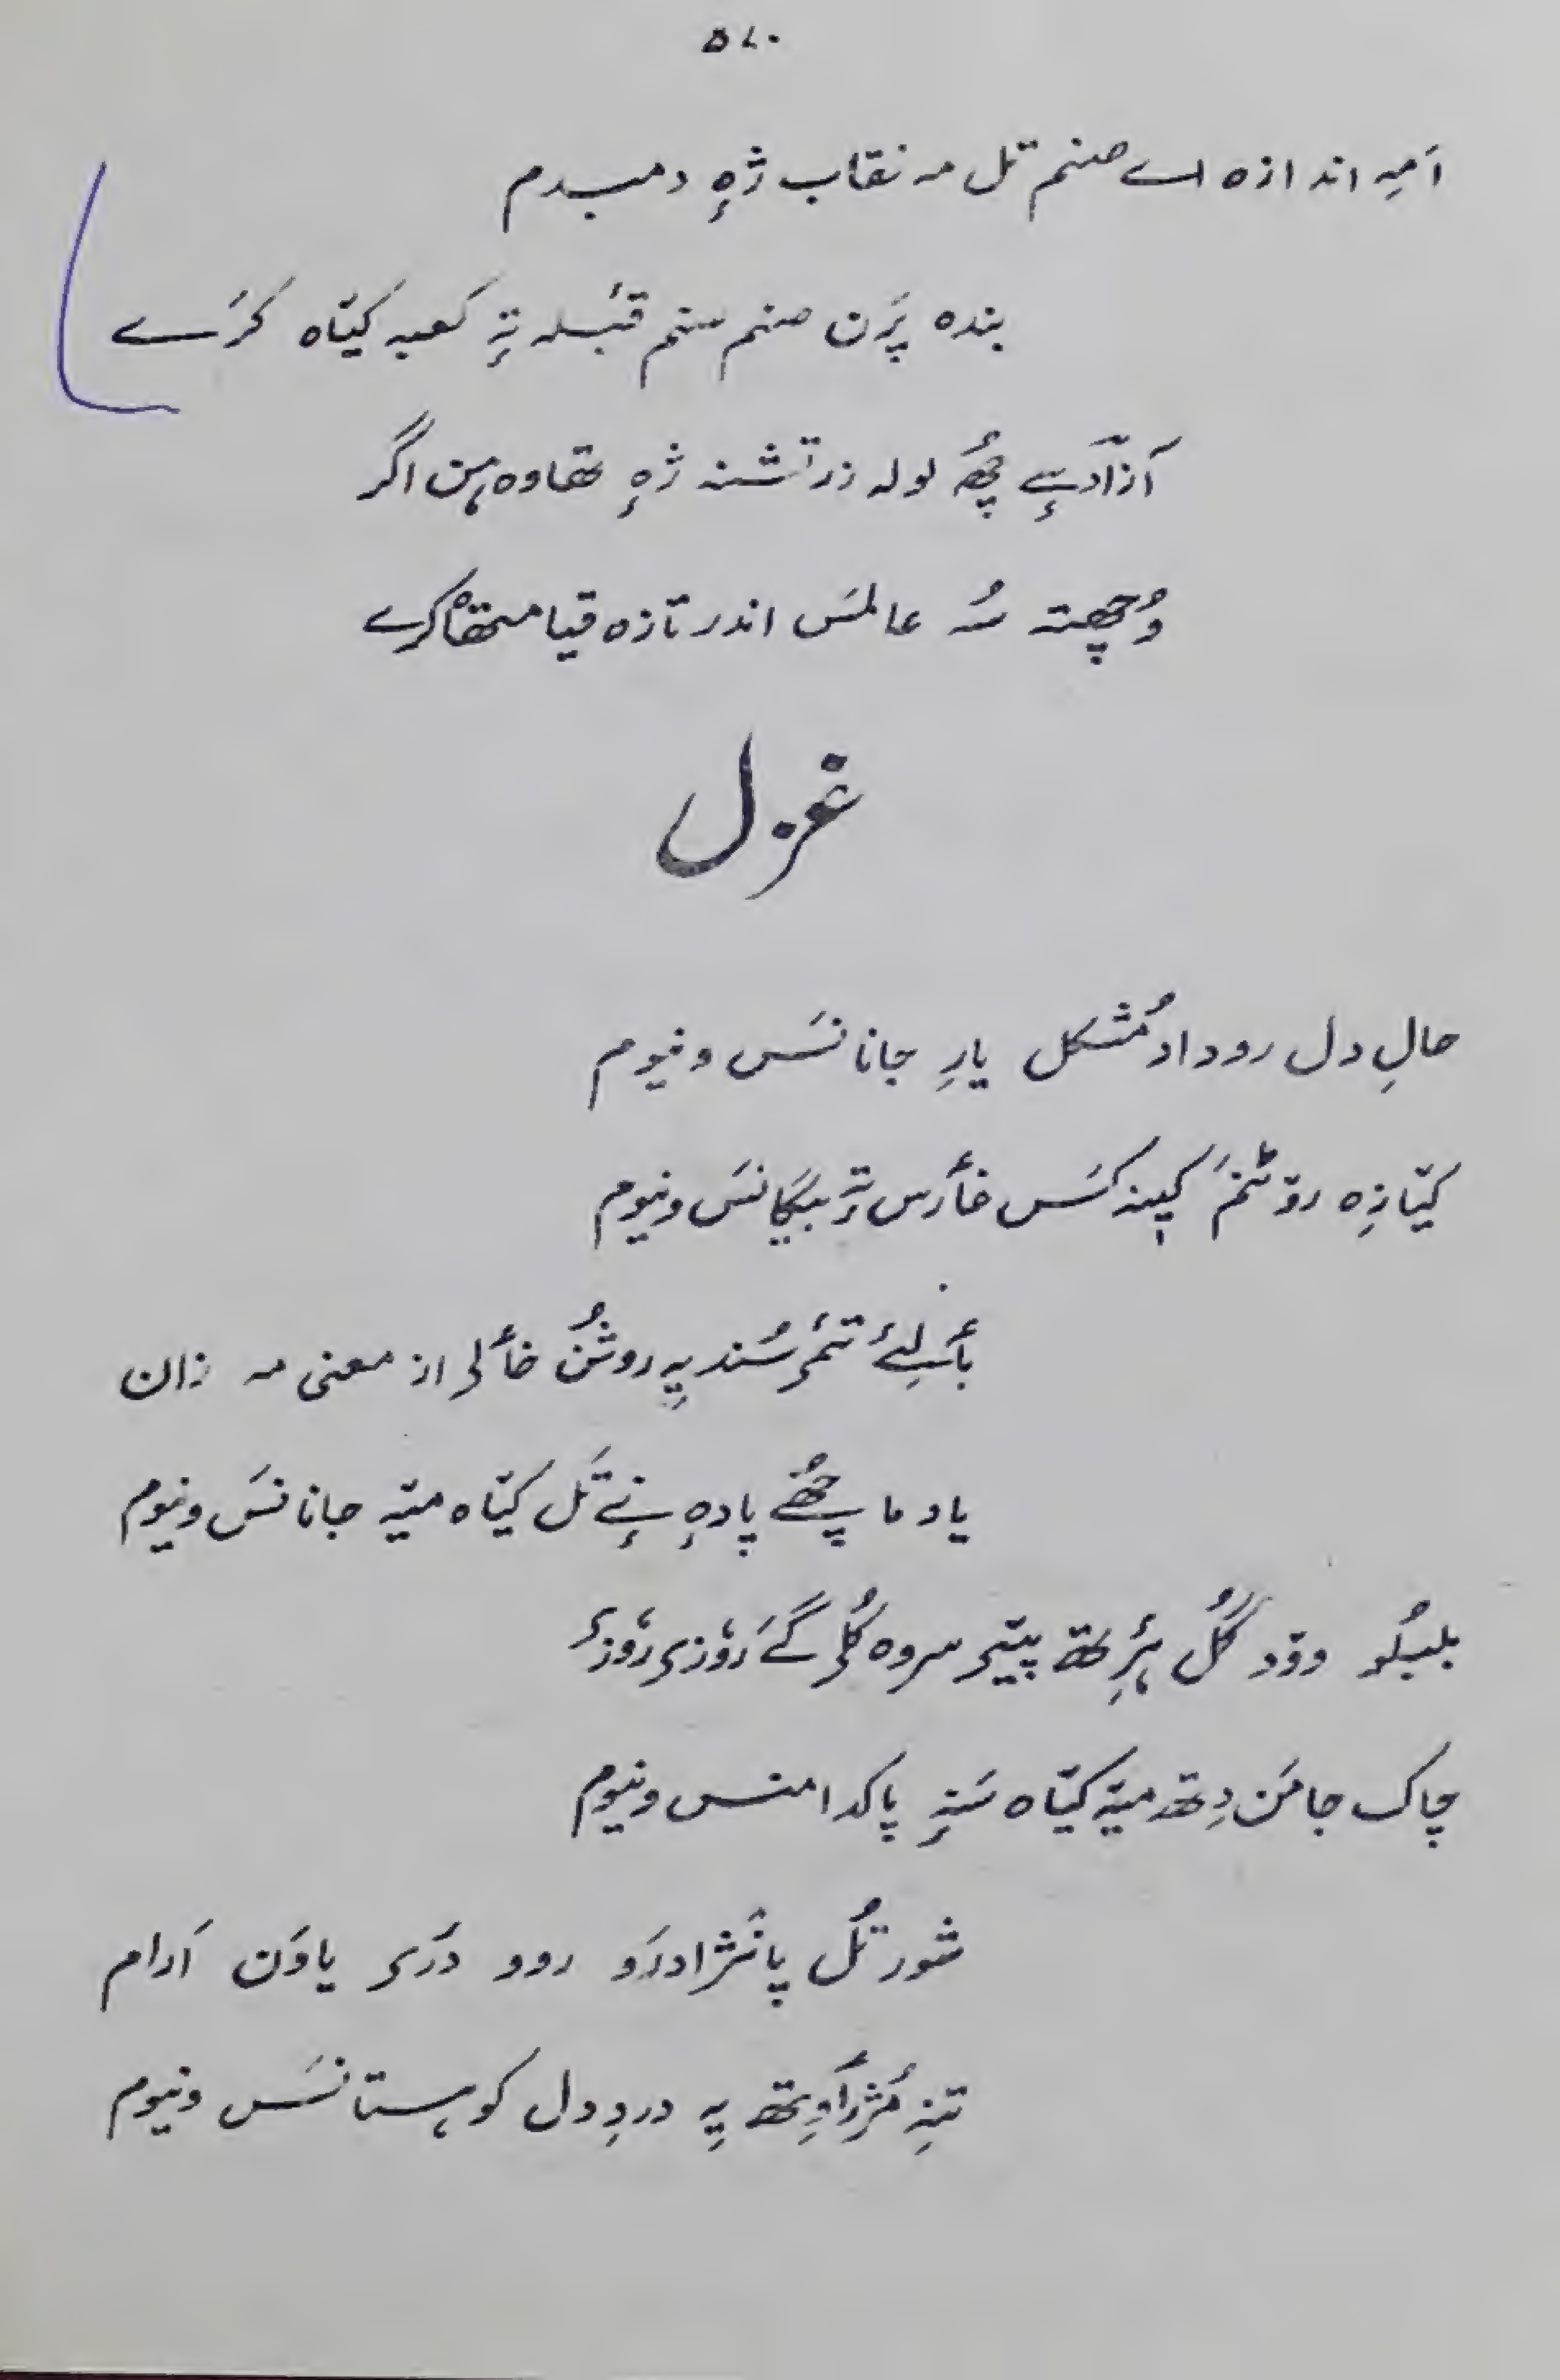 ۵۷۰
اَمہِ اندازہ اے صنم تل مہ نقاب ژٕہ دمبدم
بندہ پَرَن صنم صنم قبلہ تہٕ کعبہ کیٛاہ کرَے
آزادسٕے چھُ لولہ زر تشنہ ژٕہ تھاوہ ہن اگر
وُچھتہ سُہ عالمَس اندر تازہ قیامتھا کرے
غزل
حالِ دل روداد مُشکل یارِ جانانَس ونیوم
کیٛازِہ روٗٹنم کینہ کَس خٲرس تہٕ بیگانَس ونیوم
یاد ما چھُے پادہٕ نٕے تَل کیٛاہ میٛہ جانانَس ونیوم
بلبلُو وود گُل ہٮ۪تھ پیٛی سروہ کُلی گےَ رٔوزی رٔوزی
چاک جامَن دِتھ میٛہ کیٛاہ سَنہٕ پاکدامنس ونیوم
شور تُل پانژادرَو روو دَری یاوَن آرام
یہِ دردِ دل کوہستانَس ونیوم